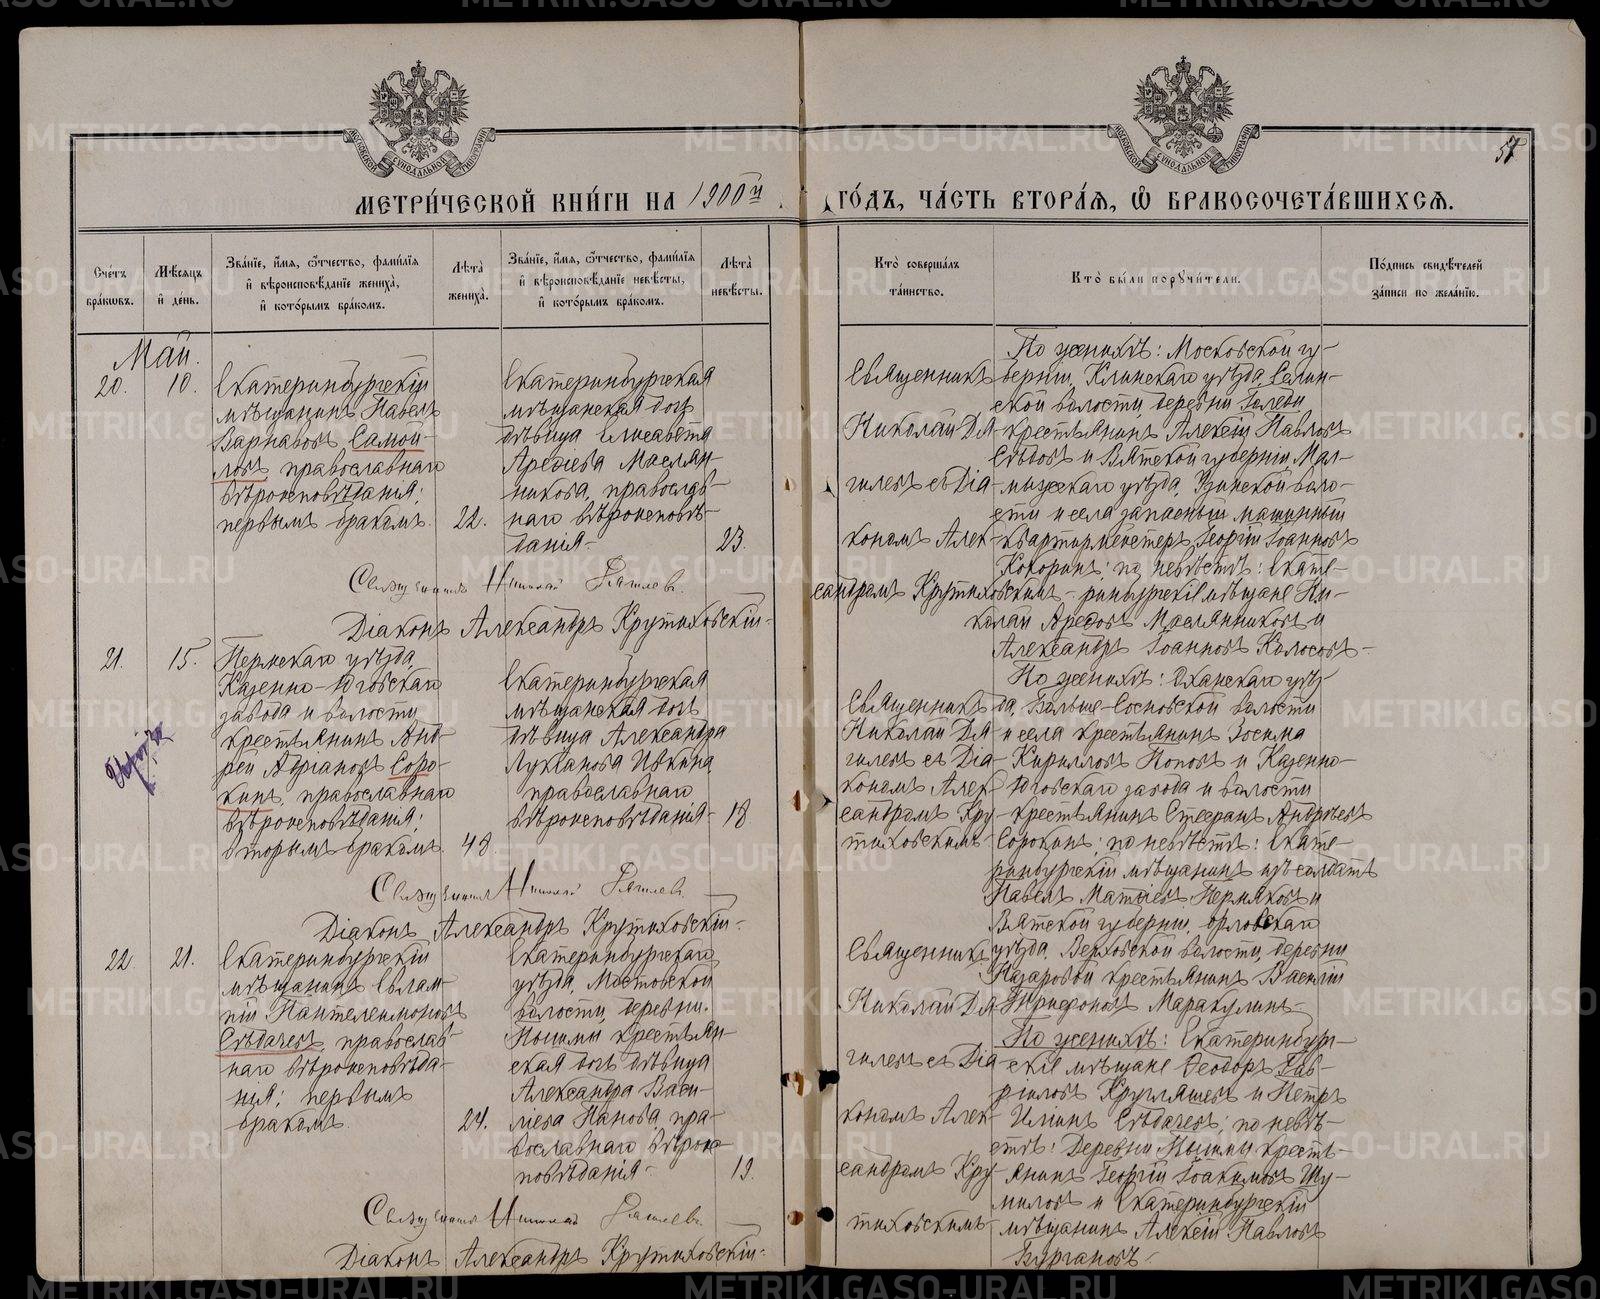 МЕТРИ́ЧЕСКОЙ КНИ́ГИ НА 1900й ГО́ДЪ, ЧА́СТЬ ВТОРА́Я, Ѡ БРАКОСОЧЕТА́ВШИХСЯ.
57
Сче́тъ бра́ковъ.
Мѣ́сяцъ и҆ де́нь.
Зва́нїе, и҆́мя, ѻ҆́тчество, фами́лїя и҆ вѣроисповѣ́данїе жениха̀, и҆ кото́рымъ бра́комъ.
Лѣ́та жениха̀.
Зва́нїе, и҆́мя, ѻ҆́тчество, фами́лїя и҆ вѣроисповѣ́данїе невѣ́сты, и҆ кото́рымъ бра́комъ.
Лѣ́та невѣ́сты.
Кто̀ соверша́лъ та́инство.
Кто̀ бы́ли порꙋчи́тели.
По́дпись свидѣ́телей за́писи по жела́нїю.
Май.
20.
10.
Екатеринбургскій
мѣщанинъ Павелъ
Варнавовъ Самой-
ловъ, православнаго
вѣроисповѣданія;
первымъ бракомъ.
22.
Екатеринбургская
мѣщанская дочь
дѣвица Елисавета
Арефіева Маслян-
никова, православ-
наго вѣроисповѣ-
данія.
23.
Священникъ
Николай Дя-
гилевъ съ Діа-
кономъ Алек-
сандромъ Крутиховскимъ.
По женихѣ: Московской гу-
берніи, Клинскаго уѣзда, Селин-
ской волости, деревни
крестьянинъ Алексій Павловъ
и Вятской губерніи Мал-
мыжскаго уѣзда, воло-
сти и села запасный машинный
квартирмейстеръ Георгій Іоанновъ
Кокоринъ; по невѣстѣ: Екате-
ринбургскіе мѣщане Ни-
колай Арефовъ Маслянниковъ и
Александръ Іоанновъ Колосовъ.
Священникъ Николай Дягилевъ.
Діаконъ Александръ Крутиховскій.
21.
15.
Пермскаго уѣзда,
Казенно-Юговскаго
завода и волости
крестьянинъ Анд-
рей Адріановъ Соро-
кинъ, православнаго
вѣроисповѣданія;
вторымъ бракомъ.
48.
Екатеринбургская
мѣщанская дочь
дѣвица Александра
Лукіанова Ивкина,
православнаго
вѣроисповѣданія.
18.
Священникъ
Николай Дя-
гилевъ съ Діа-
кономъ Алек-
сандромъ Кру-
тиховскимъ
По женихѣ: Оханскаго уѣз-
да, Больше-Сосновской волости
и села крестьянинъ Зосима
Кирилловъ Поповъ и Казенно-
Юговскаго завода и волости
крестьянинъ Стефанъ Андреевъ
Сорокинъ; по невѣстѣ: Екате-
ринбургскій мѣщанинъ изъ солдатъ
Павелъ Матѳіевъ Пермяковъ и
Вятской губерніи, Орловскаго
уѣзда, Верховской волости, деревни
Назаровой крестьянинъ Василій
Трифоновъ Маракулинъ.
Священникъ Николай Дягилевъ.
Діаконъ Александръ Крутиховскій.
22.
21.
Екатеринбургскій
мѣщанинъ Евлам-
пій Пантелеимоновъ
Сѣдачевъ, православ-
наго вѣроисповѣда-
нія; первымъ
бракомъ.
24.
Екатеринбургскаго
уѣзда, Мостовской
волости, деревни
Пышмы крестьян-
ская дочь дѣвица
Александра Васи-
лева Панова, пра-
вославнаго вѣроис-
повѣданія.
19.
Священникъ
Николай Дя-
гилевъ съ Діа-
кономъ Алек-
сандромъ Кру-
тиховскимъ.
По женихѣ: Екатеринбург-
скіе мѣщане Ѳеодоръ Гав-
ріиловъ Кругляшевъ и Петръ
Илiинъ Сѣдачевъ; по невѣ-
стѣ: Деревни Пышмы кресть-
янинъ Георгій Іоакимовъ Шу-
миловъ и Екатеринбургскій
мѣщанинъ Алексій Павловъ
Бургановъ.
Священникъ Николай Дягилевъ.
Діаконъ Александръ Крутиховскій.
METRIKI.GASO-URAL.RU